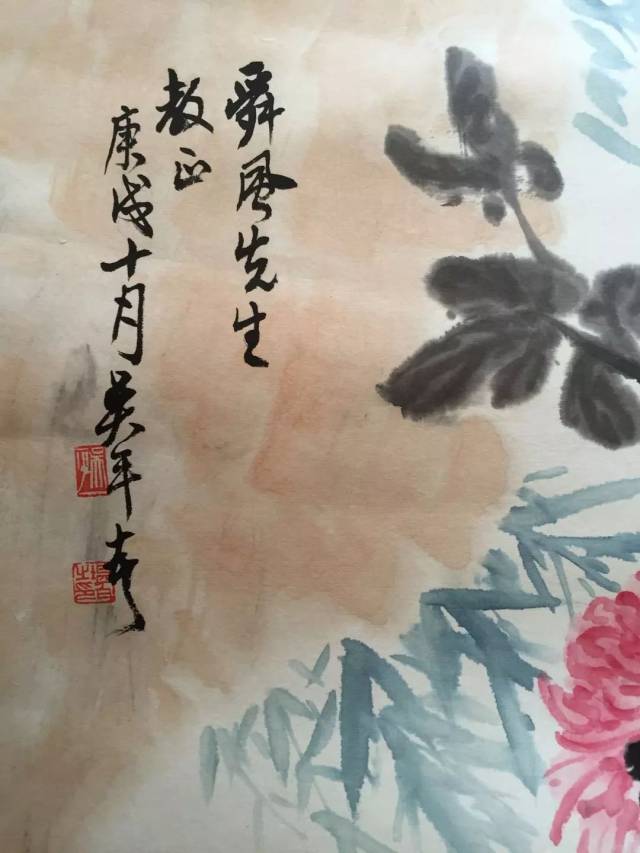 舜風先生
教正
庚戌十月吴年